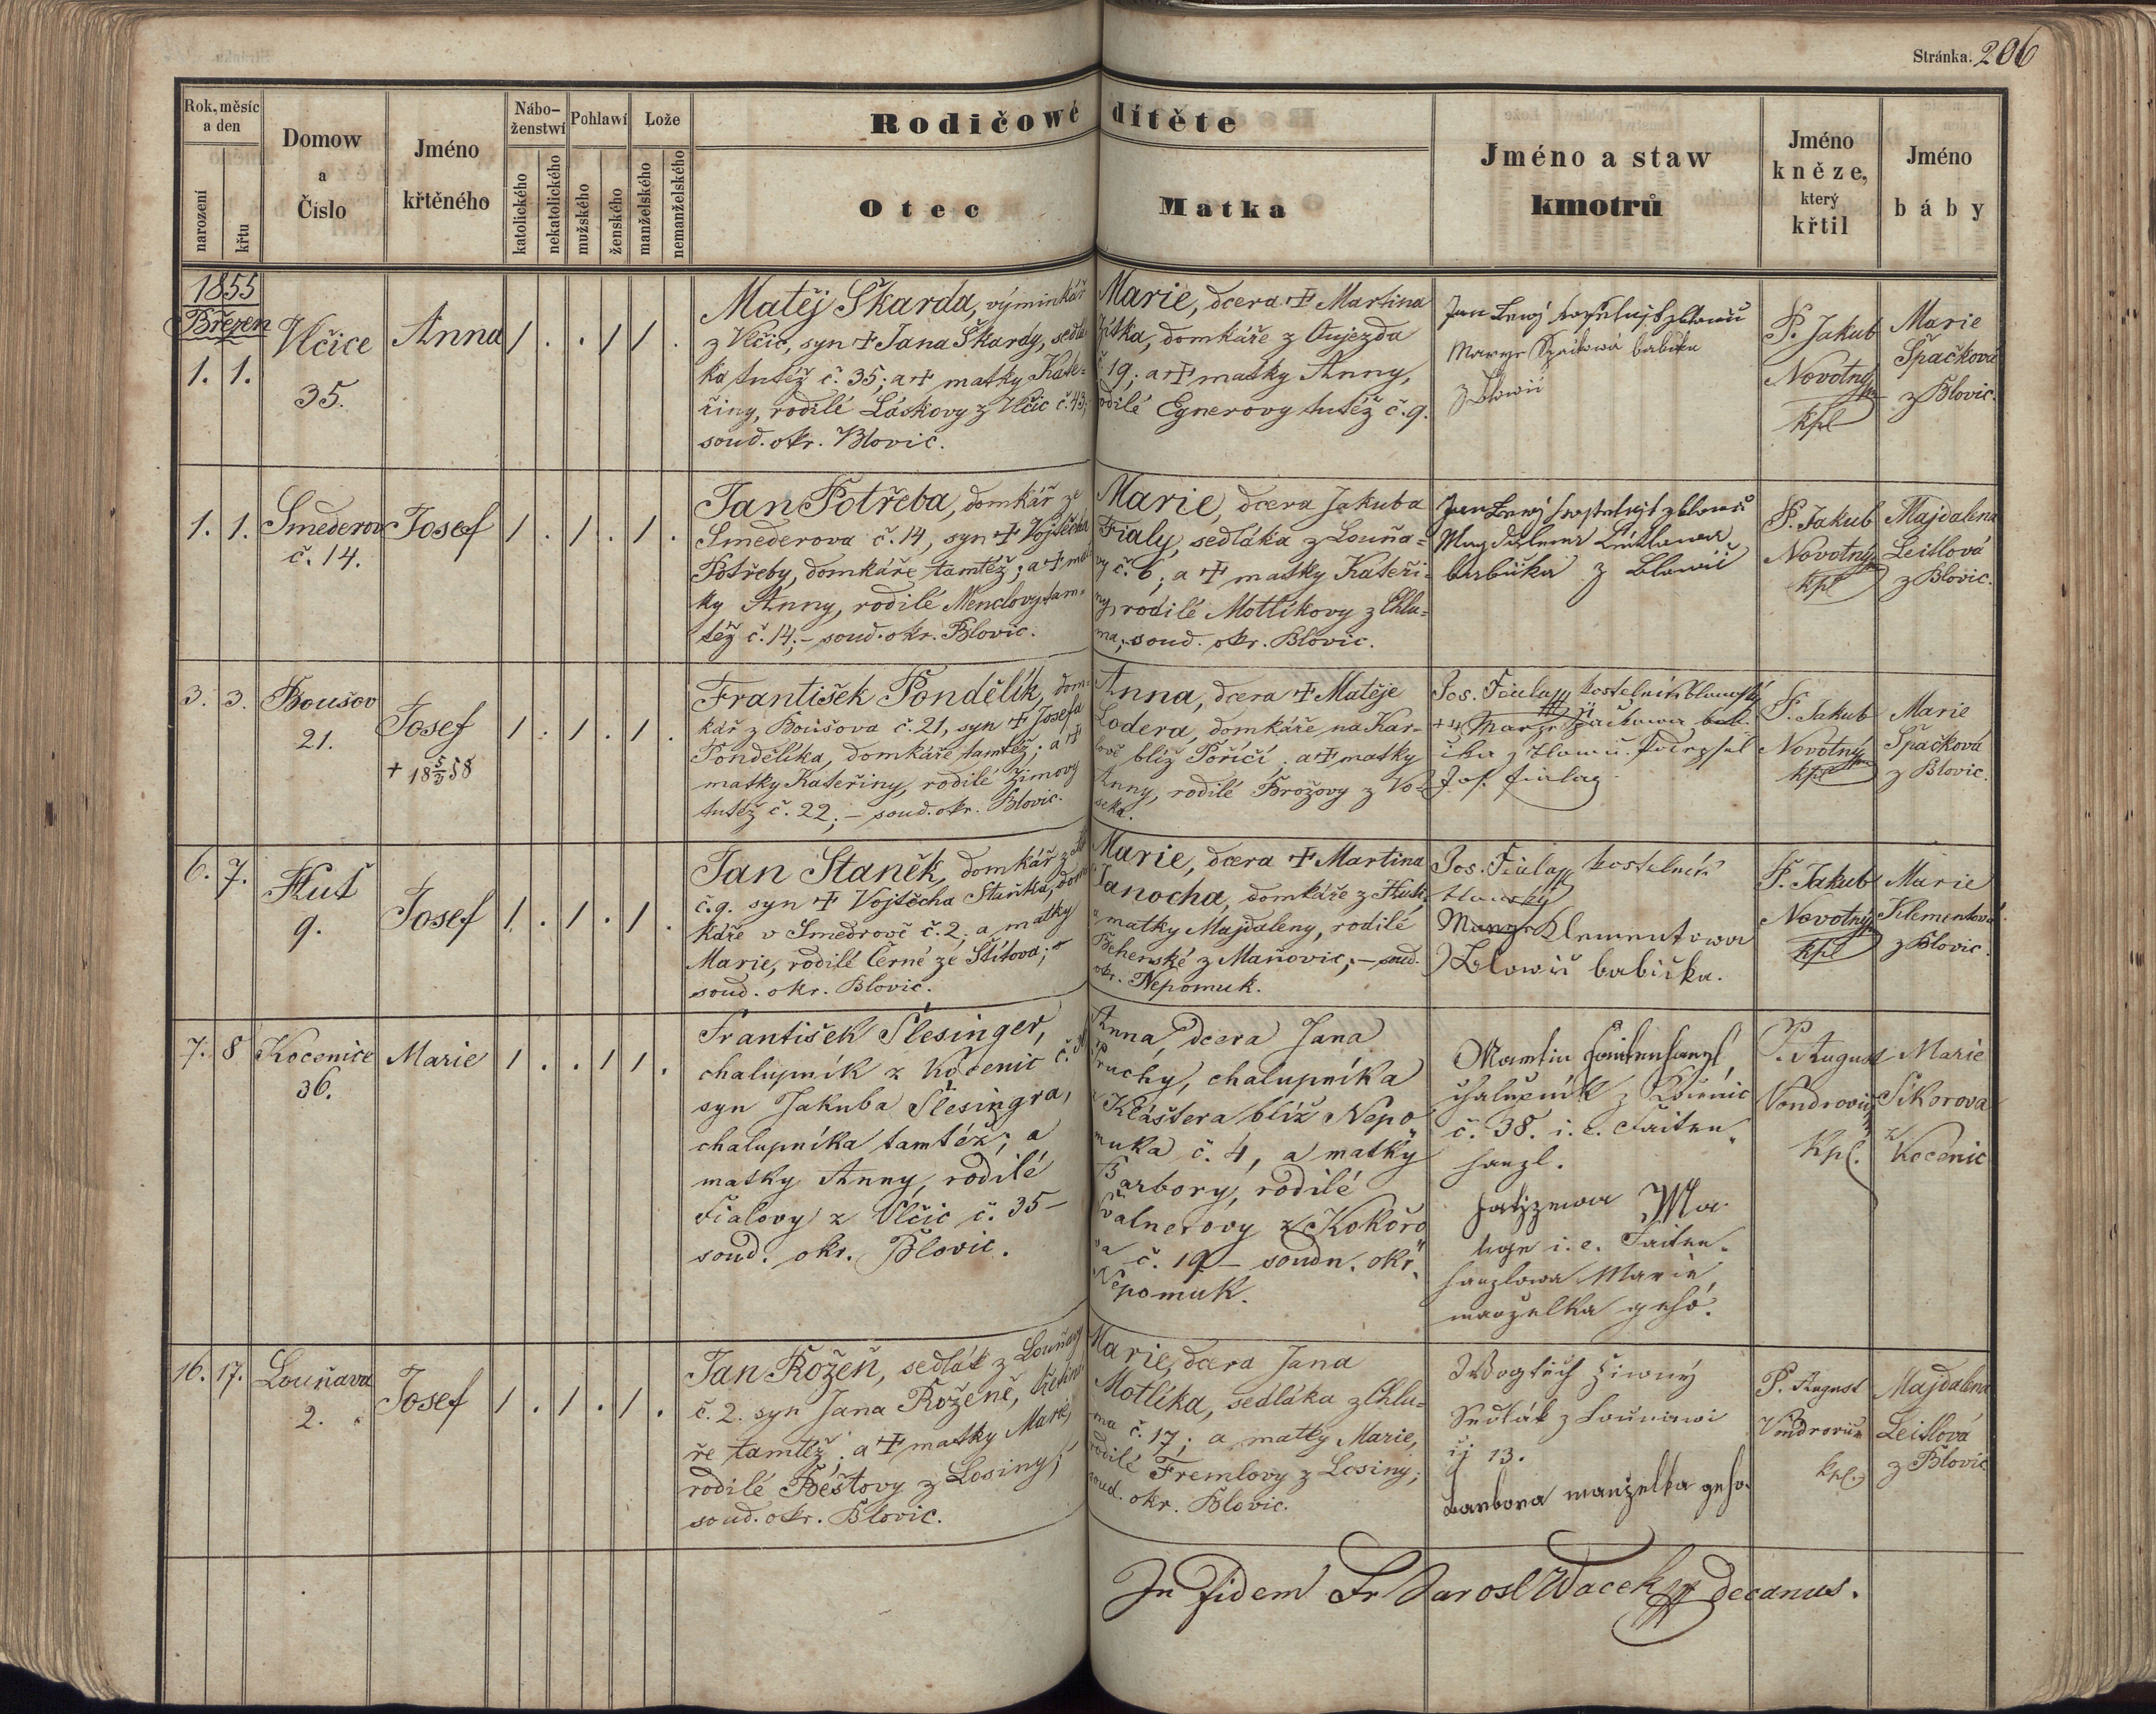 Stránka. 206
Rok, měsíc a den
narození
křtu
Domow a Číslo
Jméno křtěného
Nábo-ženstwí
katolického
nekatolického
Pohlawí
mužského
ženského
Lože
manželského
nemanželského
Rodičowé dítěte
Otec
Matka
Jméno a staw kmotrů
Jméno kněze, který křtil
Jméno báby
1855
Březen
1. 1.
Vlčice
35.
Anna
1 . . 1 1 .
Matěj Škarda, výminkář
z Vlčic, syn + Jana Škardy, sedlá-
ka tutéž č. 35; a + matky Kate-
řiny, rodilé Láskovy z Vlčic č. 43;
soud. okr. Blovic.
Marie, dcera + Martina
domkáře z Oujezda
č. 19; a + matky Anny,
rodilé Egnerovy tutéž č. 9.
Jan
Marye Špačkowá babička
z Blowic
P. Jakub
Novotný
kpl
Marie
Špačková
z Blovic.
1. 1.
Smederov
č. 14.
Josef
1 . 1 . 1 .
Jan Potřeba, domkář ze
Smederova č. 14, syn + Vojtěcha
Potřeby, domkáře tamtéž; a + mat-
ky Anny, rodilé Menclovy tam-
též č. 14; – soud. okr. Blovic.
Marie, dcera Jakuba
Fialy, sedláka z Louňa-
vy č. 6; a + matky Kateři-
ny, rodilé Motlíkovy z Chlu-
ma; soud. okr. Blovic.
Jan
Magdalena
babička z Blowic
P. Jakub
Novotný
kpl
Majdalena
Leitlová
z Blovic.
3. 3.
Bousov
21.
Josef
+ 18 5/3 58
1 . 1 . 1 .
František Pondělík, dom-
kář z Boušova č. 21, syn + Josefa
Pondělíka, domkáře tamtéž; a +
matky Kateřiny, rodilé Zimovy
tutéž č. 22; – soud. okr. Blovic.
Anna, dcera + Matěje
Lodera, domkáře na Kar-
lově blíž Poříčí; a + matky
Anny, rodilé Brožovy z Vo-
seka.
Jos. Fiala kostelník blowický
+++ Marye Špačkowa bab-
ička z Blowic. Podepsal
Jos. Fiala
P. Jakub
Novotný
kpl
Marie
Špačková
z Blovic.
6. 7.
Huť
9.
Josef
1 . 1 . 1 .
Jan Staněk, domkář z
č. 9. syn + Vojtěcha Staňka, dom-
káře v Smedrově č. 2; a matky
Marie, rodilé Černé ze Štítova;
soud. okr. Blovic.
Marie, dcera + Martina
Janocha, domkáře z Huti,
a matky Majdaleny, rodilé
Behenské z Maňovic; – soud.
okr. Nepomuk.
Jos. Fiala kostelník
blowický
Marye Klementowa
z Blowic babička.
P. Jakub
Novotný
kpl
Marie
Klementová
z Blovic.
7. 8
Kocenice
36.
Marie
1 . . 1 1 .
František Šlesinger,
chalupník z Kocenic č.
syn Jakuba Šlesingra,
chalupníka tamtéž; a
matky Anny, rodilé
Fialovy z Vlčic č. 35 –
soud. okr. Blovic.
Anna, dcera Jana
Pruchy, chalupníka
z Kláštera blíž Nepo-
muka č. 4, a matky
Barbory, rodilé
Valnerovy z Kokořo-
va č. 19 – soudn. okr.
Nepomuk.
Martin Faitenhanzl,
chalupník z Kocenic
č. 38. i. e. Faiten-
hanzl.
Ma-
i. e. Faiten-
hanzlowa Marie,
manzelka geho.
P. August
Vondrovic,
Kpl.
Marie
Sikorova
z Kocenic
16. 17.
Louňava
2.
Josef
1 . 1 . 1 .
Jan Rožeň, sedlák z Louňavy
č. 2. syn Jana Roženě,
ře tamtéž; a + matky Marie,
rodilé Beštovy z Losiny;
soud. okr. Blovic.
Marie, dcera Jana
Motlíka, sedláka z Chlu-
ma č. 17; a matky Marie,
rodilé Fremlovy z Losiny;
soud. okr. Blovic.
Wogtěch Ziwný
Sedlák z Lounawi
čj 13.
Barbora manzelka geho.
P. August
Vondrovic
kpl.
Majdalena
Leitlová
z Blovic
In fidem Fr Jarosl Wacek decanus.